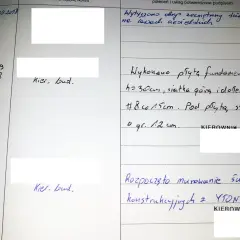 Wytyczono obrys zewnętrzny
na ławach
Kier. bud.
Wykonano płytę fundamen
h=30cm, siatka górą i dołem
#8 c 15cm. Pod płytą s
gr. 12cm.
KIEROWNIK
Kier. bud.
Rozpoczęto murowanie
konstrukcyjnych z YTON
KIEROW